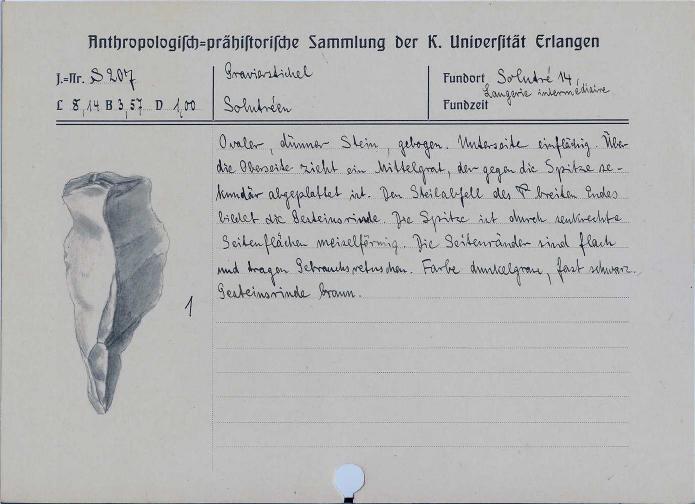 Anthropologisch=prähistorische Sammlung der K. Universität Erlangen
J.=Nr. S 207
Gravierstichel
Fundort Solutré 14,
Laugerie intermédiaire
L 8,14 B 3,57 D 1,00
Solutréen
Fundzeit
Ovaler, dünner Stein, gebogen. Unterseite einflächig. Über
die Oberseite zieht ein Mittelgrat, der gegen die Spitze se-
kundär abgeplattet ist. Den Steilabfall des breiten Endes
bildet die Gesteinsrinde. Die Spitze ist durch senkrechte
Seitenflächen meizelförmig. Die Seitenränder sind flach
und tragen Gebrauchsretuschen. Farbe dunkelgrau, fast schwarz.
Gesteinsrinde braun.
1